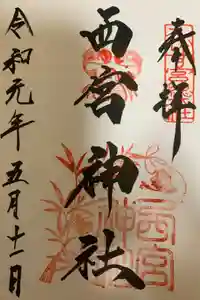 奉拝
西宮神社
令和元年五月十一日